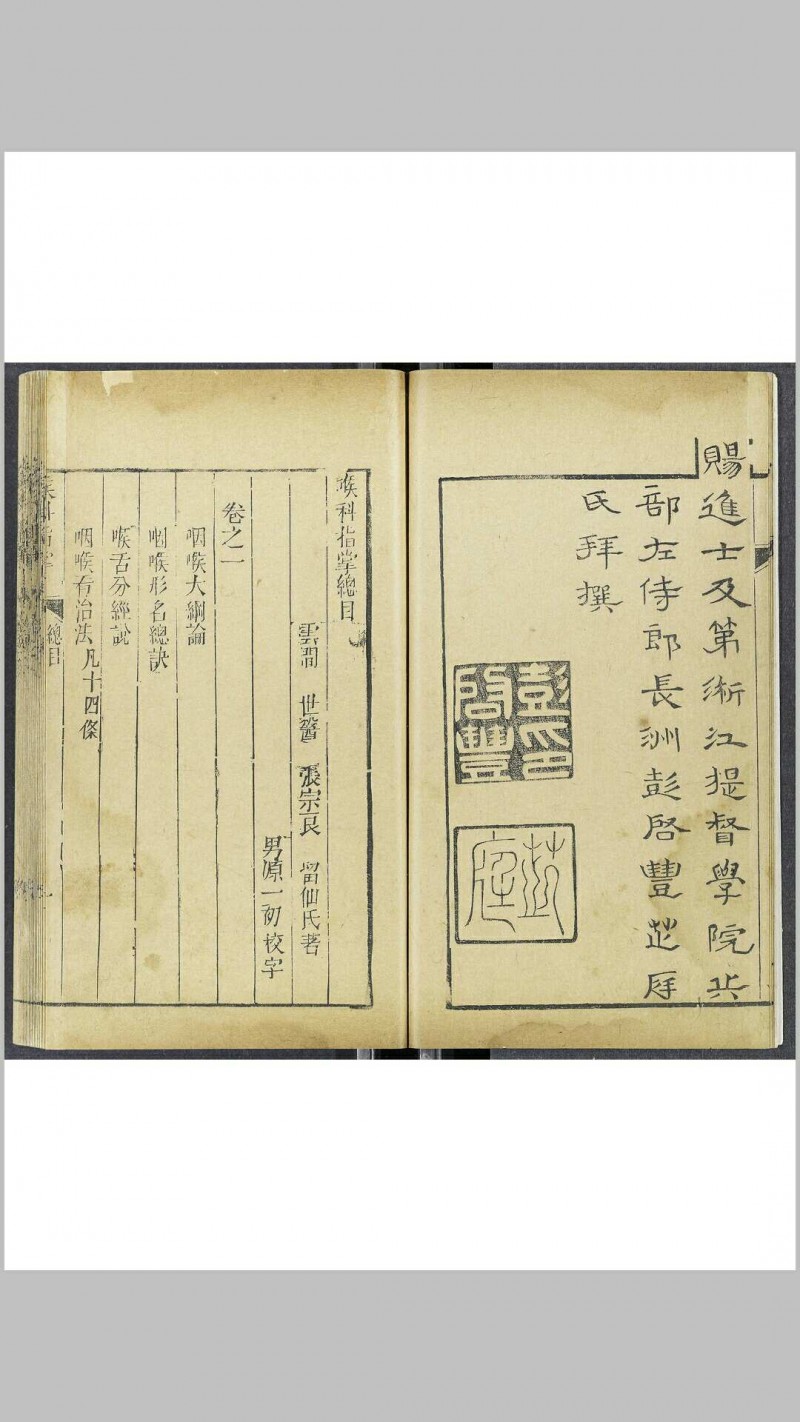 賜進士及第浙江提督學院兵
部左侍郎長洲彭啓豐芝庭
氏拜撰
彭印啓豐
芝庭
喉科指掌總目
雲間 世醫 張宗良 留仙氏著
男源一初校字
卷之一
咽喉大綱論
咽喉形名總訣
喉舌分經說
咽喉看治法凡十四條
喉科指掌 總目